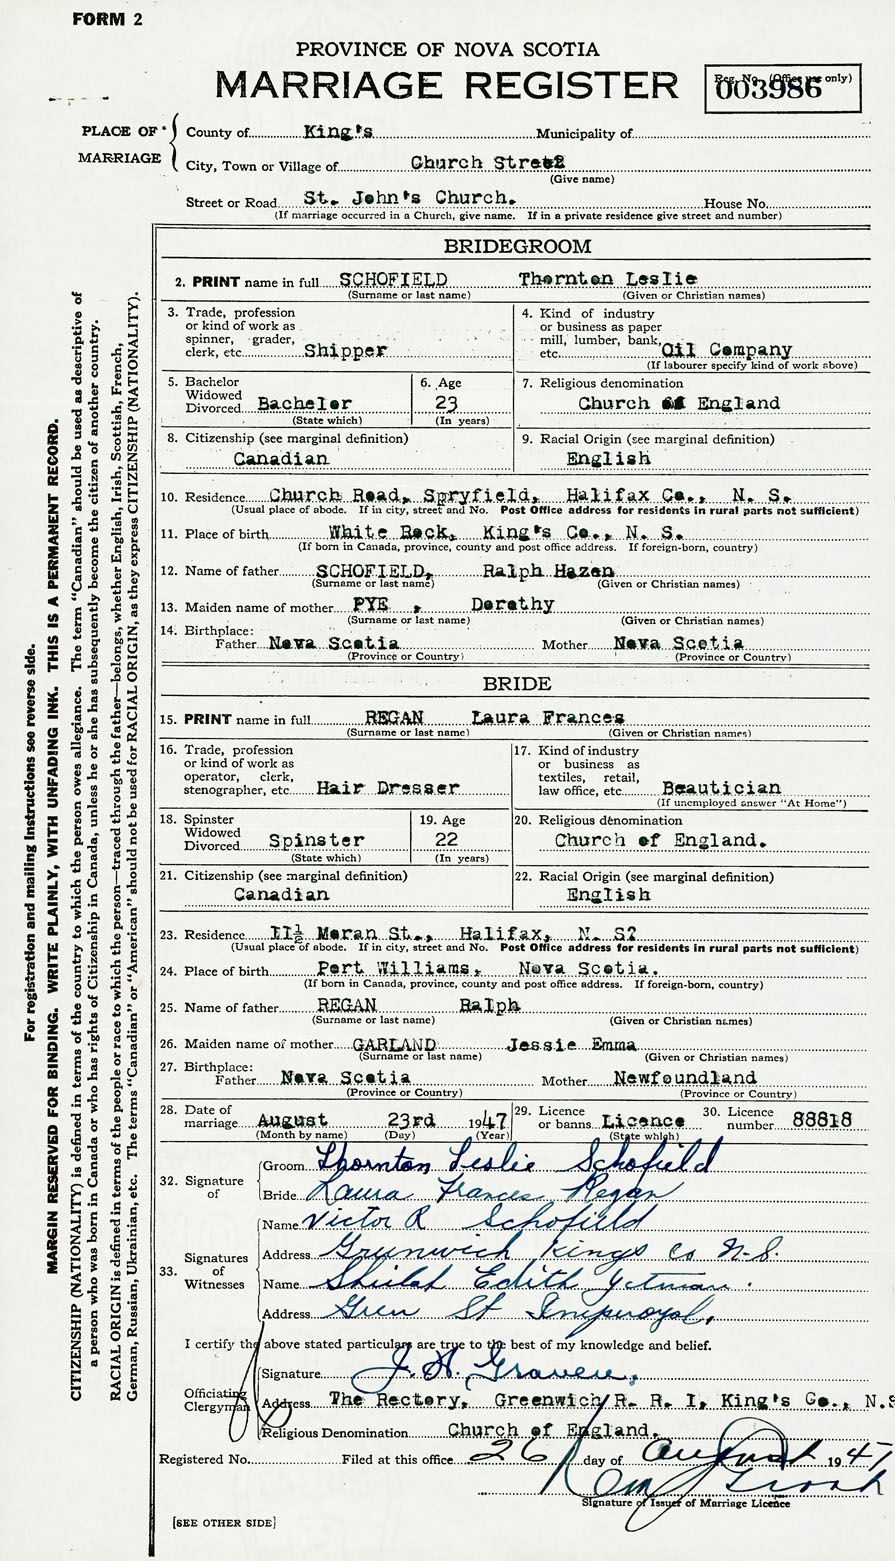 FORM 2
PROVINCE OF NOVA SCOTIA
MARRIAGE REGISTER
Reg. No. (Office use only)
003986
PLACE OF MARRIAGE
County of King's Municipality of
City, Town or Village of Church Street
(Give name)
Street or Road St. John's Church. House No.
(If marriage occurred in a Church, give name. If in a private residence give street and number)
BRIDEGROOM
2. PRINT name in full SCHOFIELD Thornton Leslie
(Surname or last name) (Given or Christian names)
3. Trade, profession or kind of work as spinner, grader, clerk, etc. Shipper
4. Kind of industry or business as paper mill, lumber, bank, etc. Oil Company
(If labourer specify kind of work above)
5. Bachelor Widowed Divorced Bachelor
(State which)
6. Age 23
(In years)
7. Religious denomination
Church of England
8. Citizenship (see marginal definition)
Canadian
9. Racial Origin (see marginal definition)
English
10. Residence Church Road, Spryfield, Halifax Co., N. S.
(Usual place of abode. If in city, street and No. Post Office address for residents in rural parts not sufficient)
11. Place of birth White Rock, King's Co., N. S.
(If born in Canada, province, county and post office address. If foreign-born, country)
12. Name of father SCHOFIELD, Ralph Hazen
(Surname or last name) (Given or Christian names)
13. Maiden name of mother PYE , Dorothy
(Surname or last name) (Given or Christian names)
14. Birthplace:
Father Nova Scotia Mother Nova Scotia
(Province or Country) (Province or Country)
BRIDE
15. PRINT name in full REGAN Laura Frances
(Surname or last name) (Given or Christian names)
16. Trade, profession or kind of work as operator, clerk, stenographer, etc. Hair Dresser
17. Kind of industry or business as textiles, retail, law office, etc. Beautician
(If unemployed answer "At Home")
18. Spinster Widowed Divorced Spinster
(State which)
19. Age 22
(In years)
20. Religious denomination
Church of England.
21. Citizenship (see marginal definition)
Canadian
22. Racial Origin (see marginal definition)
English
23. Residence II½ Moran St., Halifax, N. S?
(Usual place of abode. If in city, street and No. Post Office address for residents in rural parts not sufficient)
24. Place of birth Port Williams, Nova Scotia.
(If born in Canada, province, county and post office address. If foreign-born, country)
25. Name of father REGAN Ralph
(Surname or last name) (Given or Christian names)
26. Maiden name of mother GARLAND Jessie Emma
(Surname or last name) (Given or Christian names)
27. Birthplace:
Father Nova Scotia Mother Newfoundland
(Province or Country) (Province or Country)
28. Date of marriage August 23rd 1947
(Month by name) (Day) (Year)
29. Licence or banns Licence
(State which)
30. Licence number 88818
32. Signature of
Groom Thornton Leslie Schofield
Bride Laura Frances Regan
33. Signatures of Witnesses
Name Victor R Schofield
Address Grunwich Kings Co N.S.
Name Shielah Edith Yetman.
Address Green St Imperoyal,
I certify the above stated particulars are true to the best of my knowledge and belief.
Officiating Clergyman
Signature J. H. Graven.
Address The Rectory, Greenwich R. R. I, King's Co., N.S
Religious Denomination Church of England.
Registered No. Filed at this office 26 day of August 1947
Signature of Issuer of Marriage Licence
[SEE OTHER SIDE]
For registration and mailing instructions see reverse side.
MARGIN RESERVED FOR BINDING. WRITE PLAINLY, WITH UNFADING INK. THIS IS A PERMANENT RECORD.
CITIZENSHIP (NATIONALITY) is defined in terms of the country to which the person owes allegiance. The term "Canadian" should be used as descriptive of
a person who was born in Canada or who has rights of Citizenship in Canada, unless he or she has subsequently become the citizen of another country.
RACIAL ORIGIN is defined in terms of the people or race to which the person—traced through the father—belongs, whether English, Irish, Scottish, French,
German, Russian, Ukrainian, etc. The terms "Canadian" or "American" should not be used for RACIAL ORIGIN, as they express CITIZENSHIP (NATIONALITY).